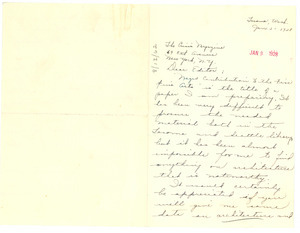 Tacoma, Wash.
Jan. 2 - 1928
The Crisis Magazine
69 5th Avenue
New York, N.Y.
JAN 9 1928
Dear Editor;
"Negro Contribution to the Fine
Arts" is the title of a
paper I am preparing. It
has been very difficult to
procure the needed
material both in the
Tacoma and Seattle library
but it has been almost
impossible for me to find
anything on architecture
that is noteworthy.
It would certainly
be appreciated if you
will give me some
data on architecture and